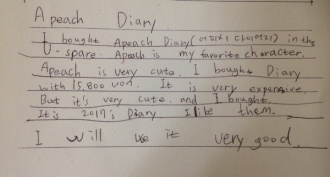 Apeach Diary
I bought Apeach Diary(어피치 다이어리) in the
spare. Apeach is my favorite character.
Apeach is very cute. I bought Diary
with 15,800 won. It is very expensive.
But it's very cute, and I bought.
It is 2017's Diary I like them.
I will use it very good.